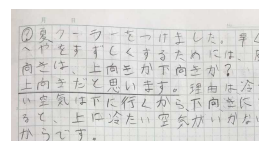 ②夏クーラーをつけました。早く
へやをすずしくするためには、風
向きは、上向きか下向きか?
上向きだと思います。理由は冷
い空気は下に行くから、下向きに
ると、上に冷たい空気がいかない
からです。